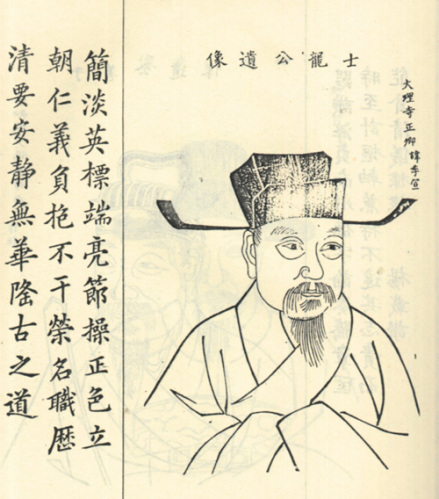 士龍公遺像
大理寺正卿諱宣
簡淡英標端亮節操正色立
朝仁義負抱不干榮名職歷
清要安靜無華隆古之道